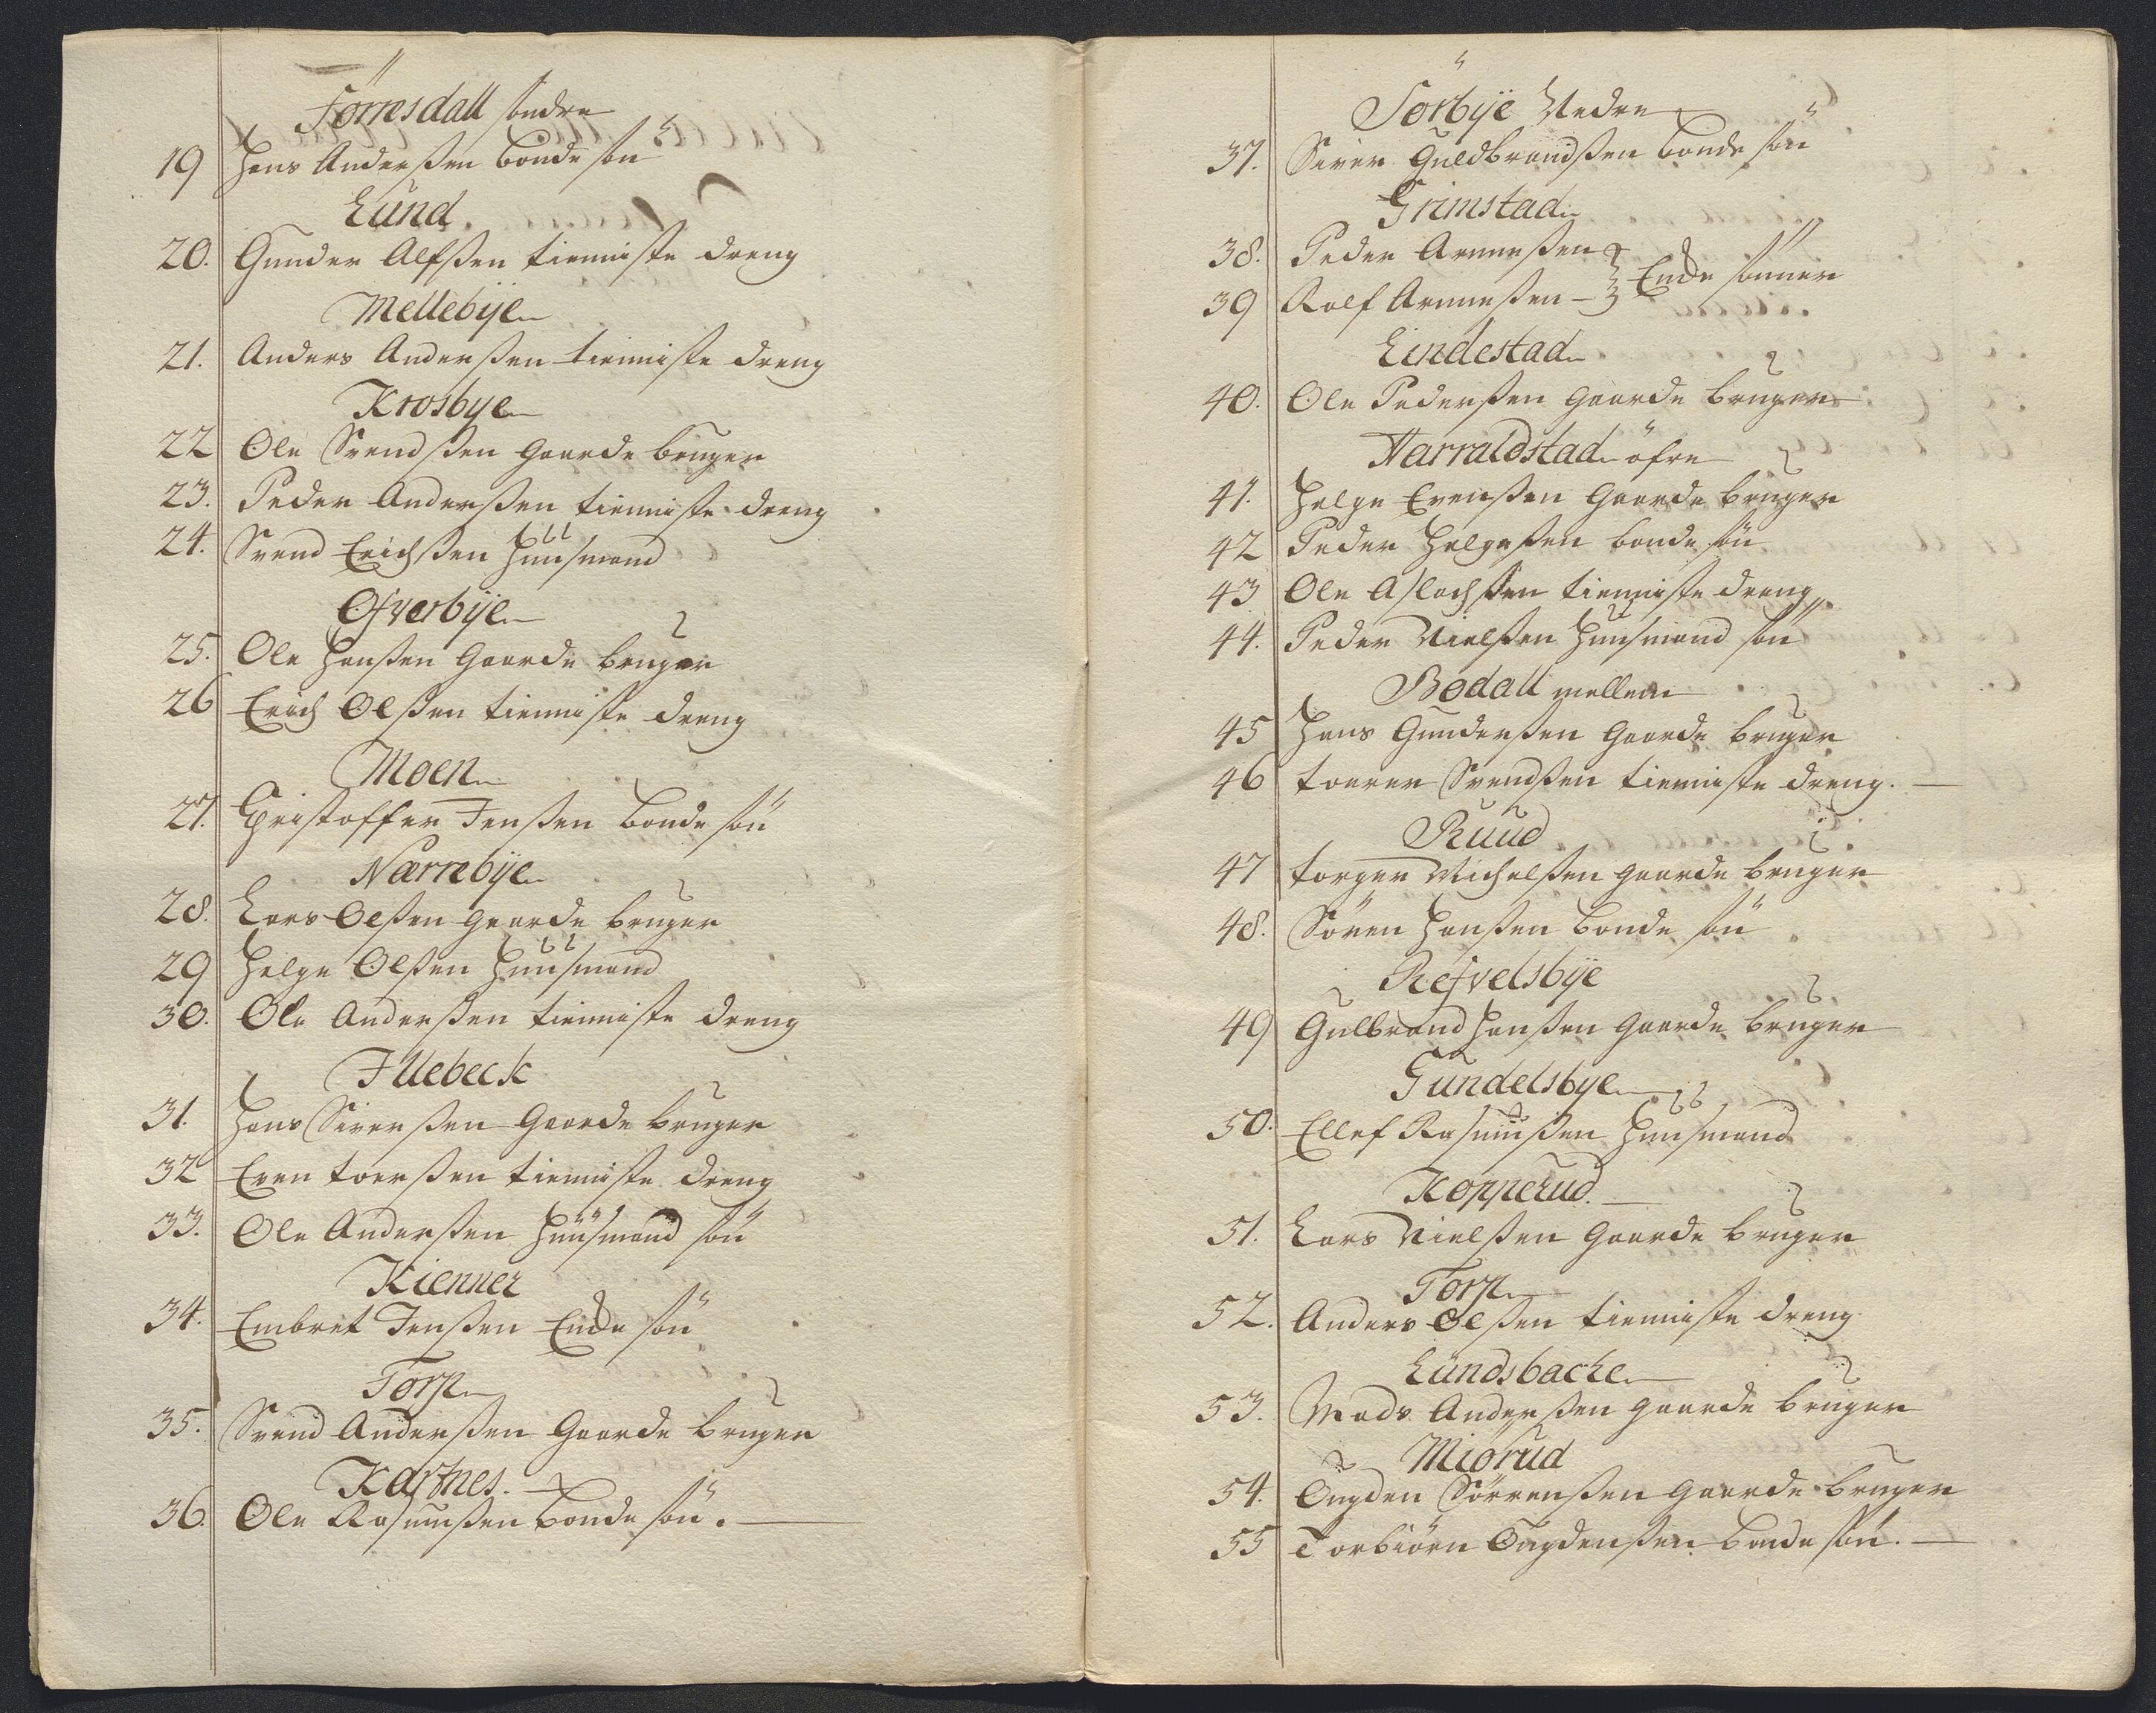 Törresdall söndre
19 Hans Anderßen bonde sön
Lund
20. Gunder Alfßen tienniste dreng
Mellebÿe
21. Anders Anderßen tienniste dreng
Krosbye
22 Ole Svendßen gaarde bruger
23. Peder Anderßen tienniste dreng
24. Svend Erichßen Huusmand
Ofverbÿe
25. Ole Hanßen Gaarde bruger
26 Erich Olßen tienniste dreng
Moen
27. Christoffer Jenßen bonde sön
Nærrebÿe
28. Lars Olßen gaarde bruger
29 Helge Olßen Huusmand
30. Ole Anderßen tienniste dreng
Illebeck
31. Hans Siverßen Gaarde bruger
32 Even toerßen tienniste dreng
33. Ole Anderßen Huusmand sön
Kienner
34. Embret Jenßen Enke sön
Torp
35. Svend Anderßen Gaarde bruger
Kaxnes.
36. Ole Rasmußen bonde sön.
Sörbÿe Nedre
37. Siver Guldbrandßen bonde sön
Grimstad
38. Peder Arneßen
Enke sönner
39 Rolf Arneßen
Lindestad
40. Ole Pederßen gaarde bruger
Harraldstad öfre
41. Helge Evenßen Gaarde bruger
42 Peder Helgeßen bonde sön
43 Ole Aslachßen tienniste dreng
44. Peder Nielßen Huusmand sön
Bødall mellem
45 Hans Gunderßen Gaarde bruger
46 toerer Svendßen tienniste dreng.
Ruud
47 torger Michelßen gaarde bruger
48. Sören Hanßen bonde sön
Refvelsbÿe
49 Gulbrand Hanßen Gaarde bruger
Gundelsbye
50. Ellef Rasmußen Huusmand
Kopperud.
51. Lars Nielßen Gaarde bruger
Torp
52. Anders Olßen tienniste dreng
Lundsbacke
53. Mads Anderßen gaarde bruger
Miörud
54. Øugden Sörrenßen gaarde bruger
55 Torbiörn Øugdenßen bonde sön.